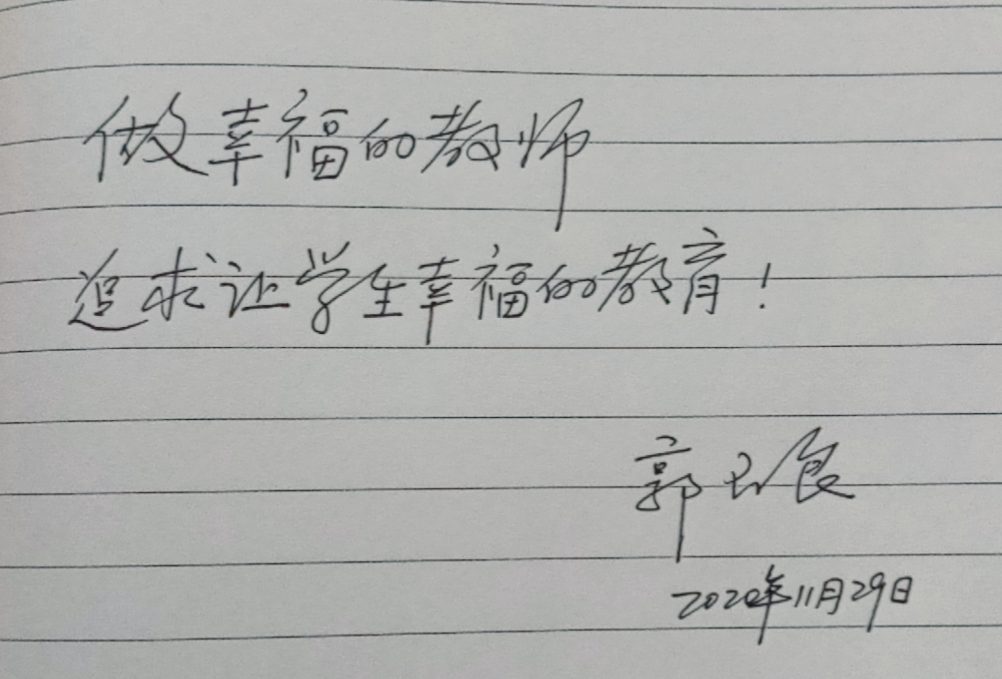 做幸福的教师
追求让学生幸福的教育!
郭
2020年11月29日